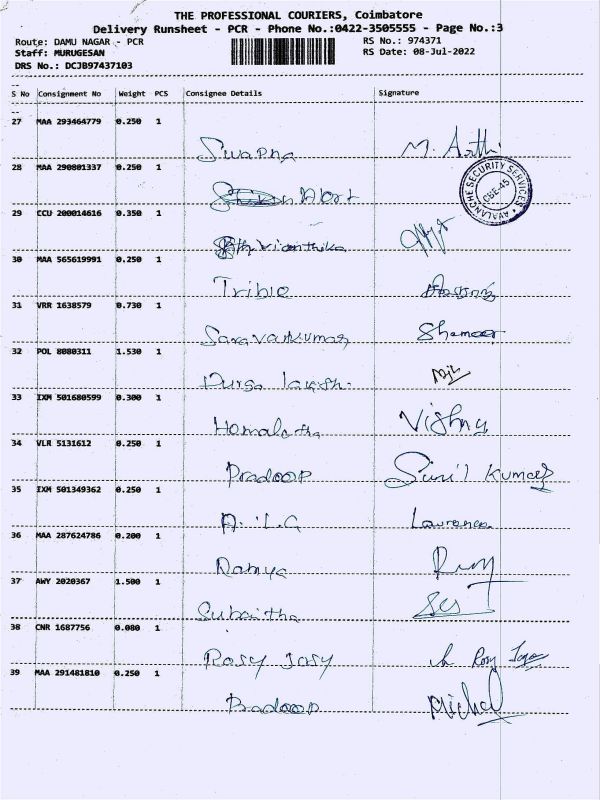 THE PROFESSIONAL COURIERS, Coimbatore
Delivery Runsheet - PCR - Phone No.:0422-3505555 - Page No.:3
Route: DAMU NAGAR - PCR RS No.: 974371
Staff: MURUGESAN RS Date: 08-Jul-2022
DRS No.: DCJB97437103
S No Consignment No Weight PCS Consignee Details Signature
27 MAA 293464779 0.250 1
Swapna M. Aathi
28 MAA 290801337 0.250 1
AVALANCHE SECURITY SERVICES
CBE-45
29 CCU 200014616 0.350 1
30 MAA 565619991 0.250 1
Tribie
31 VRR 1638579 0.730 1
Saravankumar Shameer
32 POL 8080311 1.530 1
Durga
33 IXM 501680599 0.300 1
Hemalatha Vishnu
34 VLR 5131612 0.250 1
Pradeep Sunil Kumar
35 IXM 501349362 0.250 1
A.I.L.G Lawrence
36 MAA 287624786 0.200 1
Ramya
37 AWY 2020367 1.500 1
38 CNR 1687756 0.080 1
Rosy Josy
39 MAA 291481810 0.250 1
Pradeep Michel